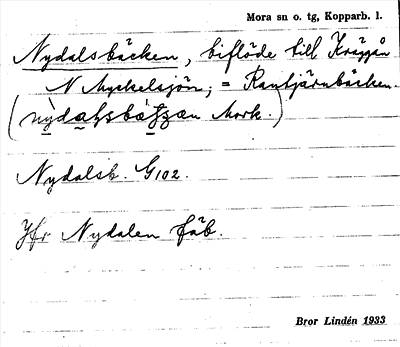 Mora sn o. tg, Kopparb. l.
Nydalsbäcken, biflöde till Kräggån
N Myckelsjön; = Rantjärnbäcken.
Mork.)
Nydalsb. G102.
Jfr Nydalen fäb.
Bror Lindén 1933